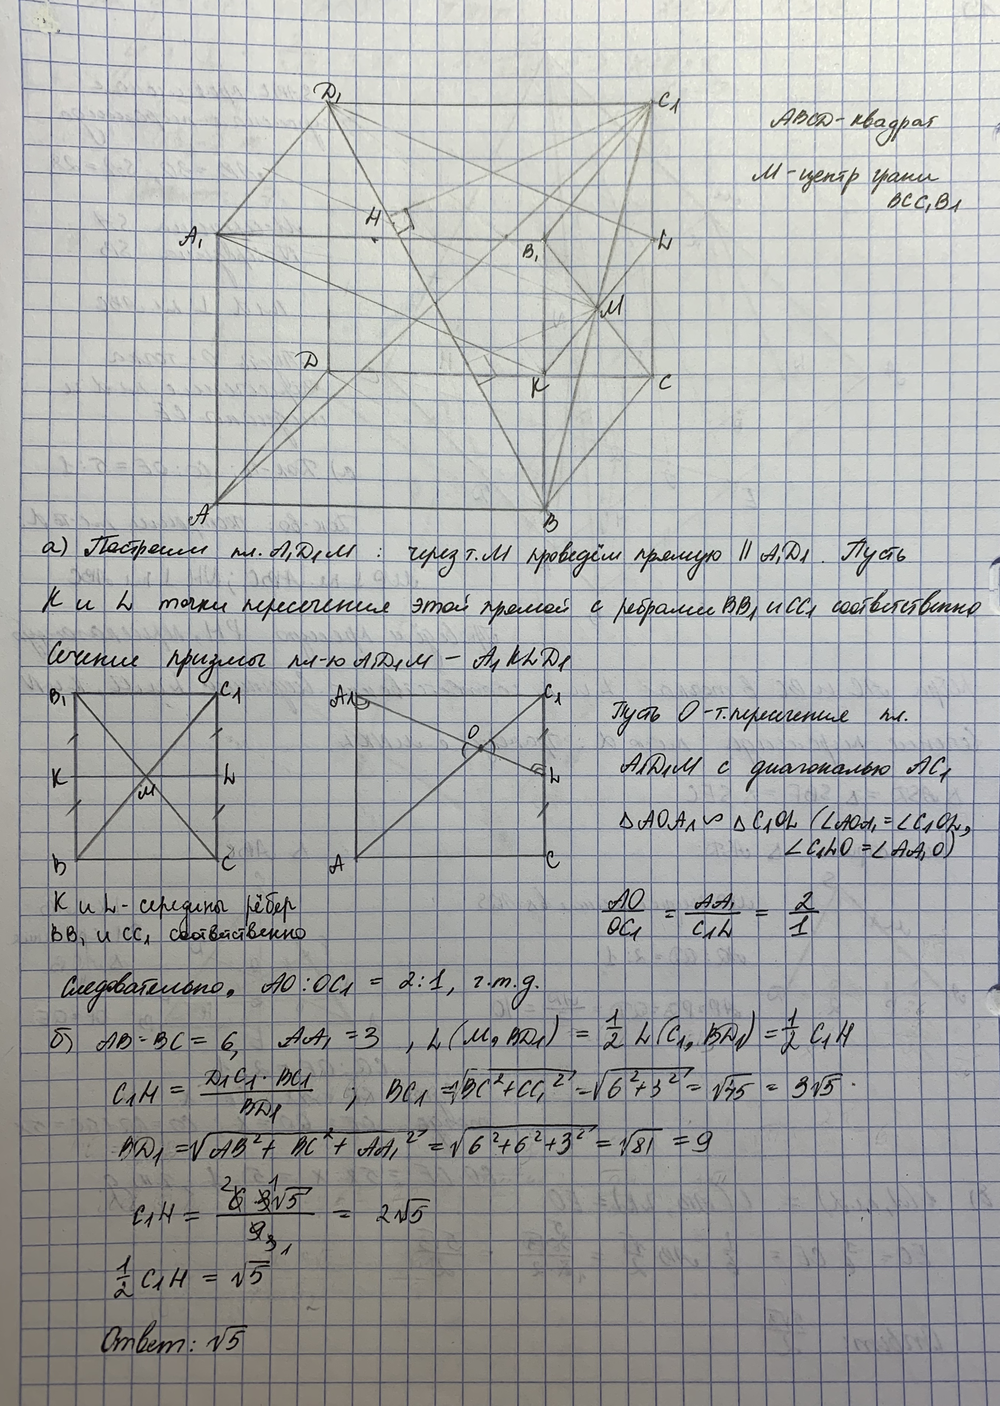 D₁
C₁
ABCD - квадрат
M - центр грани
BCC₁B₁
H
A₁
B₁
L
M
D
K
C
A
B
а) Построим пл. A₁D₁M : через т. M проведём прямую || A₁D₁. Пусть
K и L точки пересечения этой прямой с ребрами BB₁ и CC₁ соответственно
Сечение призмы пл-ю A₁D₁M - A₁KLD₁
B₁ C₁
K L
M
B C
A₁ C₁
O
L
A C
Пусть O - т. пересечения пл.
A₁D₁M с диагональю AC₁
△AOA₁ ∽ △C₁OL (∠AOA₁ = ∠C₁OL,
∠C₁LO = ∠AA₁O)
K и L - середины рёбер
BB₁ и CC₁ соответственно
AO/OC₁ = AA₁/C₁L = 2/1
Следовательно, AO : OC₁ = 2:1, ч.т.д.
б) AB = BC = 6, AA₁ = 3, L(M, BD₁) = 1/2 L(C₁, BD₁) = 1/2 C₁H
C₁H = D₁C₁ · BC₁/BD₁ ; BC₁ = √(BC² + CC₁²) = √(6² + 3²) = √45 = 3√5.
BD₁ = √(AB² + BC² + AA₁²) = √(6² + 6² + 3²) = √81 = 9
C₁H = 6 · 3√5/9 = 2√5
1/2 C₁H = √5
Ответ: √5